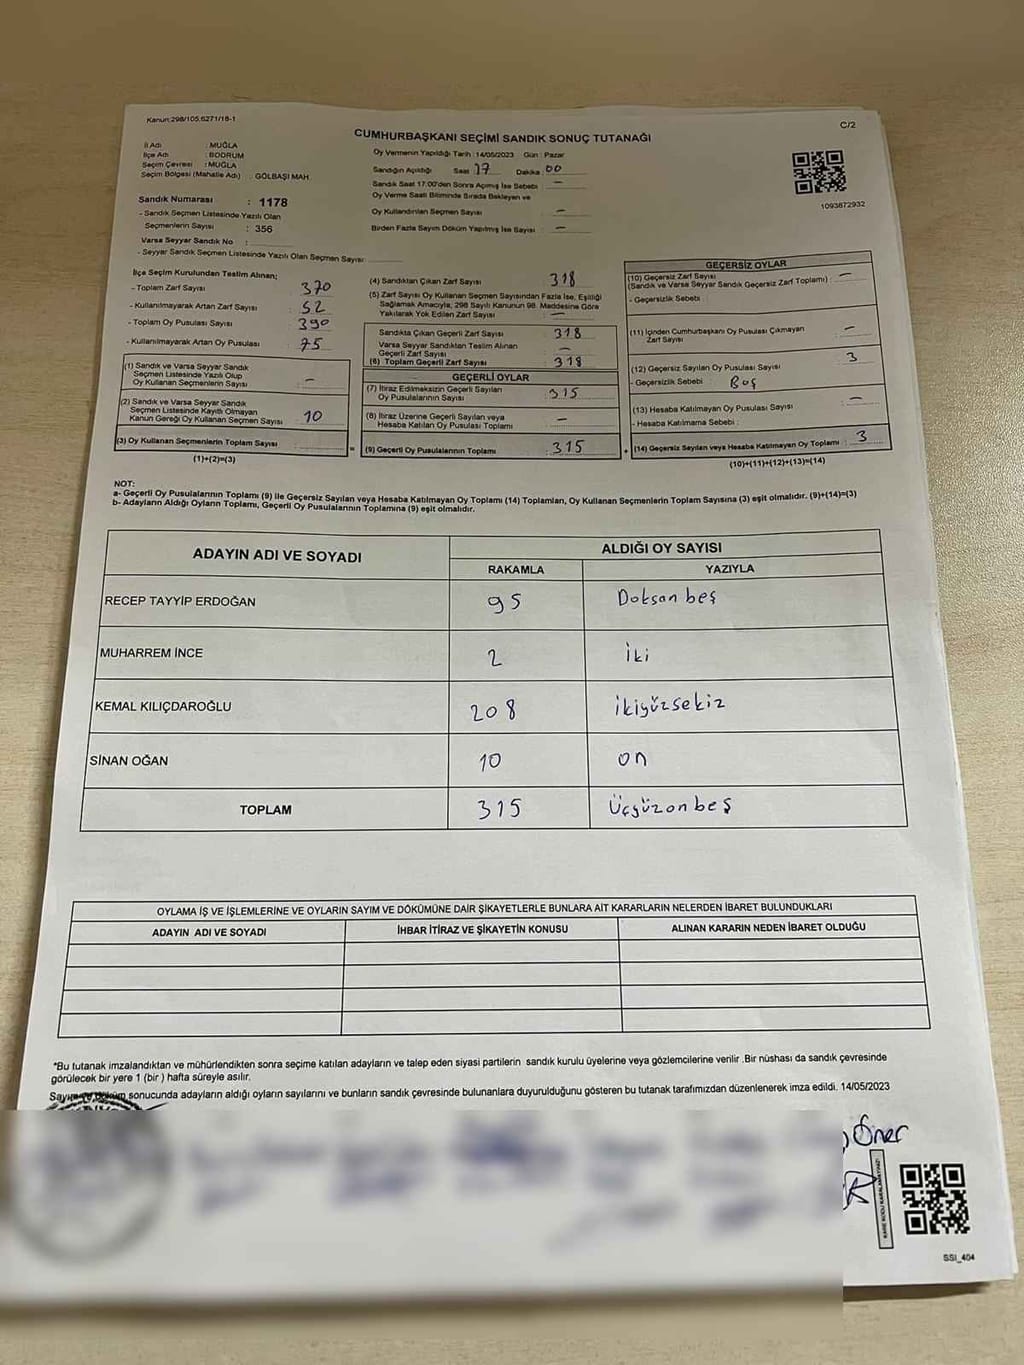 Kanun:298/105,6271/18-1
C/2
CUMHURBAŞKANI SEÇİMİ SANDIK SONUÇ TUTANAĞI
İl Adı : MUĞLA
İlçe Adı : BODRUM
Seçim Çevresi : MUĞLA
Seçim Bölgesi (Mahalle Adı) : GÖLBAŞI MAH.
Oy Vermenin Yapıldığı Tarih : 14/05/2023 Gün : Pazar
Sandığın Açıldığı Saat 17 Dakika 00
Sandık Saat 17:00'den Sonra Açımış İse Sebebi —
Oy Verme Saati Bitiminde Sırada Bekleyen ve
Oy Kullandırılan Seçmen Sayısı —
Birden Fazla Sayım Döküm Yapılmış İse Sayısı —
1093872932
Sandık Numarası : 1178
- Sandık Seçmen Listesinde Yazılı Olan
Seçmenlerin Sayısı : 356
Varsa Seyyar Sandık No :
- Seyyar Sandık Seçmen Listesinde Yazılı Olan Seçmen Sayısı
İlçe Seçim Kurulundan Teslim Alınan;
- Toplam Zarf Sayısı 370
- Kullanılmayarak Artan Zarf Sayısı 52
- Toplam Oy Pusulası Sayısı 390
- Kullanılmayarak Artan Oy Pusulası 75
(1) Sandık ve Varsa Seyyar Sandık
Seçmen Listesinde Yazılı Olup
Oy Kullanan Seçmenlerin Sayısı —
(2) Sandık ve Varsa Seyyar Sandık
Seçmen Listesinde Kayıtlı Olmayan
Kanun Gereği Oy Kullanan Seçmen Sayısı 10
(3) Oy Kullanan Seçmenlerin Toplam Sayısı
(1)+(2)=(3)
(4) Sandıktan Çıkan Zarf Sayısı 318
(5) Zarf Sayısı Oy Kullanan Seçmen Sayısından Fazla İse, Eşitliği
Sağlamak Amacıyla, 298 Sayılı Kanunun 98. Maddesine Göre
Yakılarak Yok Edilen Zarf Sayısı : —
Sandıkta Çıkan Geçerli Zarf Sayısı 318
Varsa Seyyar Sandıktan Teslim Alınan
Geçerli Zarf Sayısı —
(6) Toplam Geçerli Zarf Sayısı 318
GEÇERLİ OYLAR
(7) İtiraz Edilmeksizin Geçerli Sayılan
Oy Pusulalarının Sayısı : 315
(8) İtiraz Üzerine Geçerli Sayılan veya
Hesaba Katılan Oy Pusulası Toplamı —
= (9) Geçerli Oy Pusulalarının Toplamı : 315
GEÇERSİZ OYLAR
(10) Geçersiz Zarf Sayısı
(Sandık ve Varsa Seyyar Sandık Geçersiz Zarf Toplamı) : —
- Geçersizlik Sebebi :
(11) İçinden Cumhurbaşkanı Oy Pusulası Çıkmayan
Zarf Sayısı —
(12) Geçersiz Sayılan Oy Pusulası Sayısı 3
- Geçersizlik Sebebi : Boş
(13) Hesaba Katılmayan Oy Pusulası Sayısı —
- Hesaba Katılmama Sebebi :
+ (14) Geçersiz Sayılan veya Hesaba Katılmayan Oy Toplamı : 3
(10)+(11)+(12)+(13)=(14)
NOT:
a- Geçerli Oy Pusulalarının Toplamı (9) ile Geçersiz Sayılan veya Hesaba Katılmayan Oy Toplamı (14) Toplamları, Oy Kullanan Seçmenlerin Toplam Sayısına (3) eşit olmalıdır. (9)+(14)=(3)
b- Adayların Aldığı Oyların Toplamı, Geçerli Oy Pusulalarının Toplamına (9) eşit olmalıdır.
ADAYIN ADI VE SOYADI ALDIĞI OY SAYISI
RAKAMLA YAZIYLA
RECEP TAYYİP ERDOĞAN 95 Doksan beş
MUHARREM İNCE 2 iki
KEMAL KILIÇDAROĞLU 208 ikiyüzsekiz
SİNAN OĞAN 10 on
TOPLAM 315 Üçyüzonbeş
OYLAMA İŞ VE İŞLEMLERİNE VE OYLARIN SAYIM VE DÖKÜMÜNE DAİR ŞİKAYETLERLE BUNLARA AİT KARARLARIN NELERDEN İBARET BULUNDUKLARI
ADAYIN ADI VE SOYADI İHBAR İTİRAZ VE ŞİKAYETİN KONUSU ALINAN KARARIN NEDEN İBARET OLDUĞU
*Bu tutanak imzalandıktan ve mühürlendikten sonra seçime katılan adayların ve talep eden siyasi partilerin sandık kurulu üyelerine veya gözlemcilerine verilir .Bir nüshası da sandık çevresinde
görülecek bir yere 1 (bir ) hafta süreyle asılır.
Sayım ve döküm sonucunda adayların aldığı oyların sayılarını ve bunların sandık çevresinde bulunanlara duyurulduğunu gösteren bu tutanak tarafımızdan düzenlenerek imza edildi. 14/05/2023
Öner
KARE KODU KARALAMAYINIZ!
SSI_404